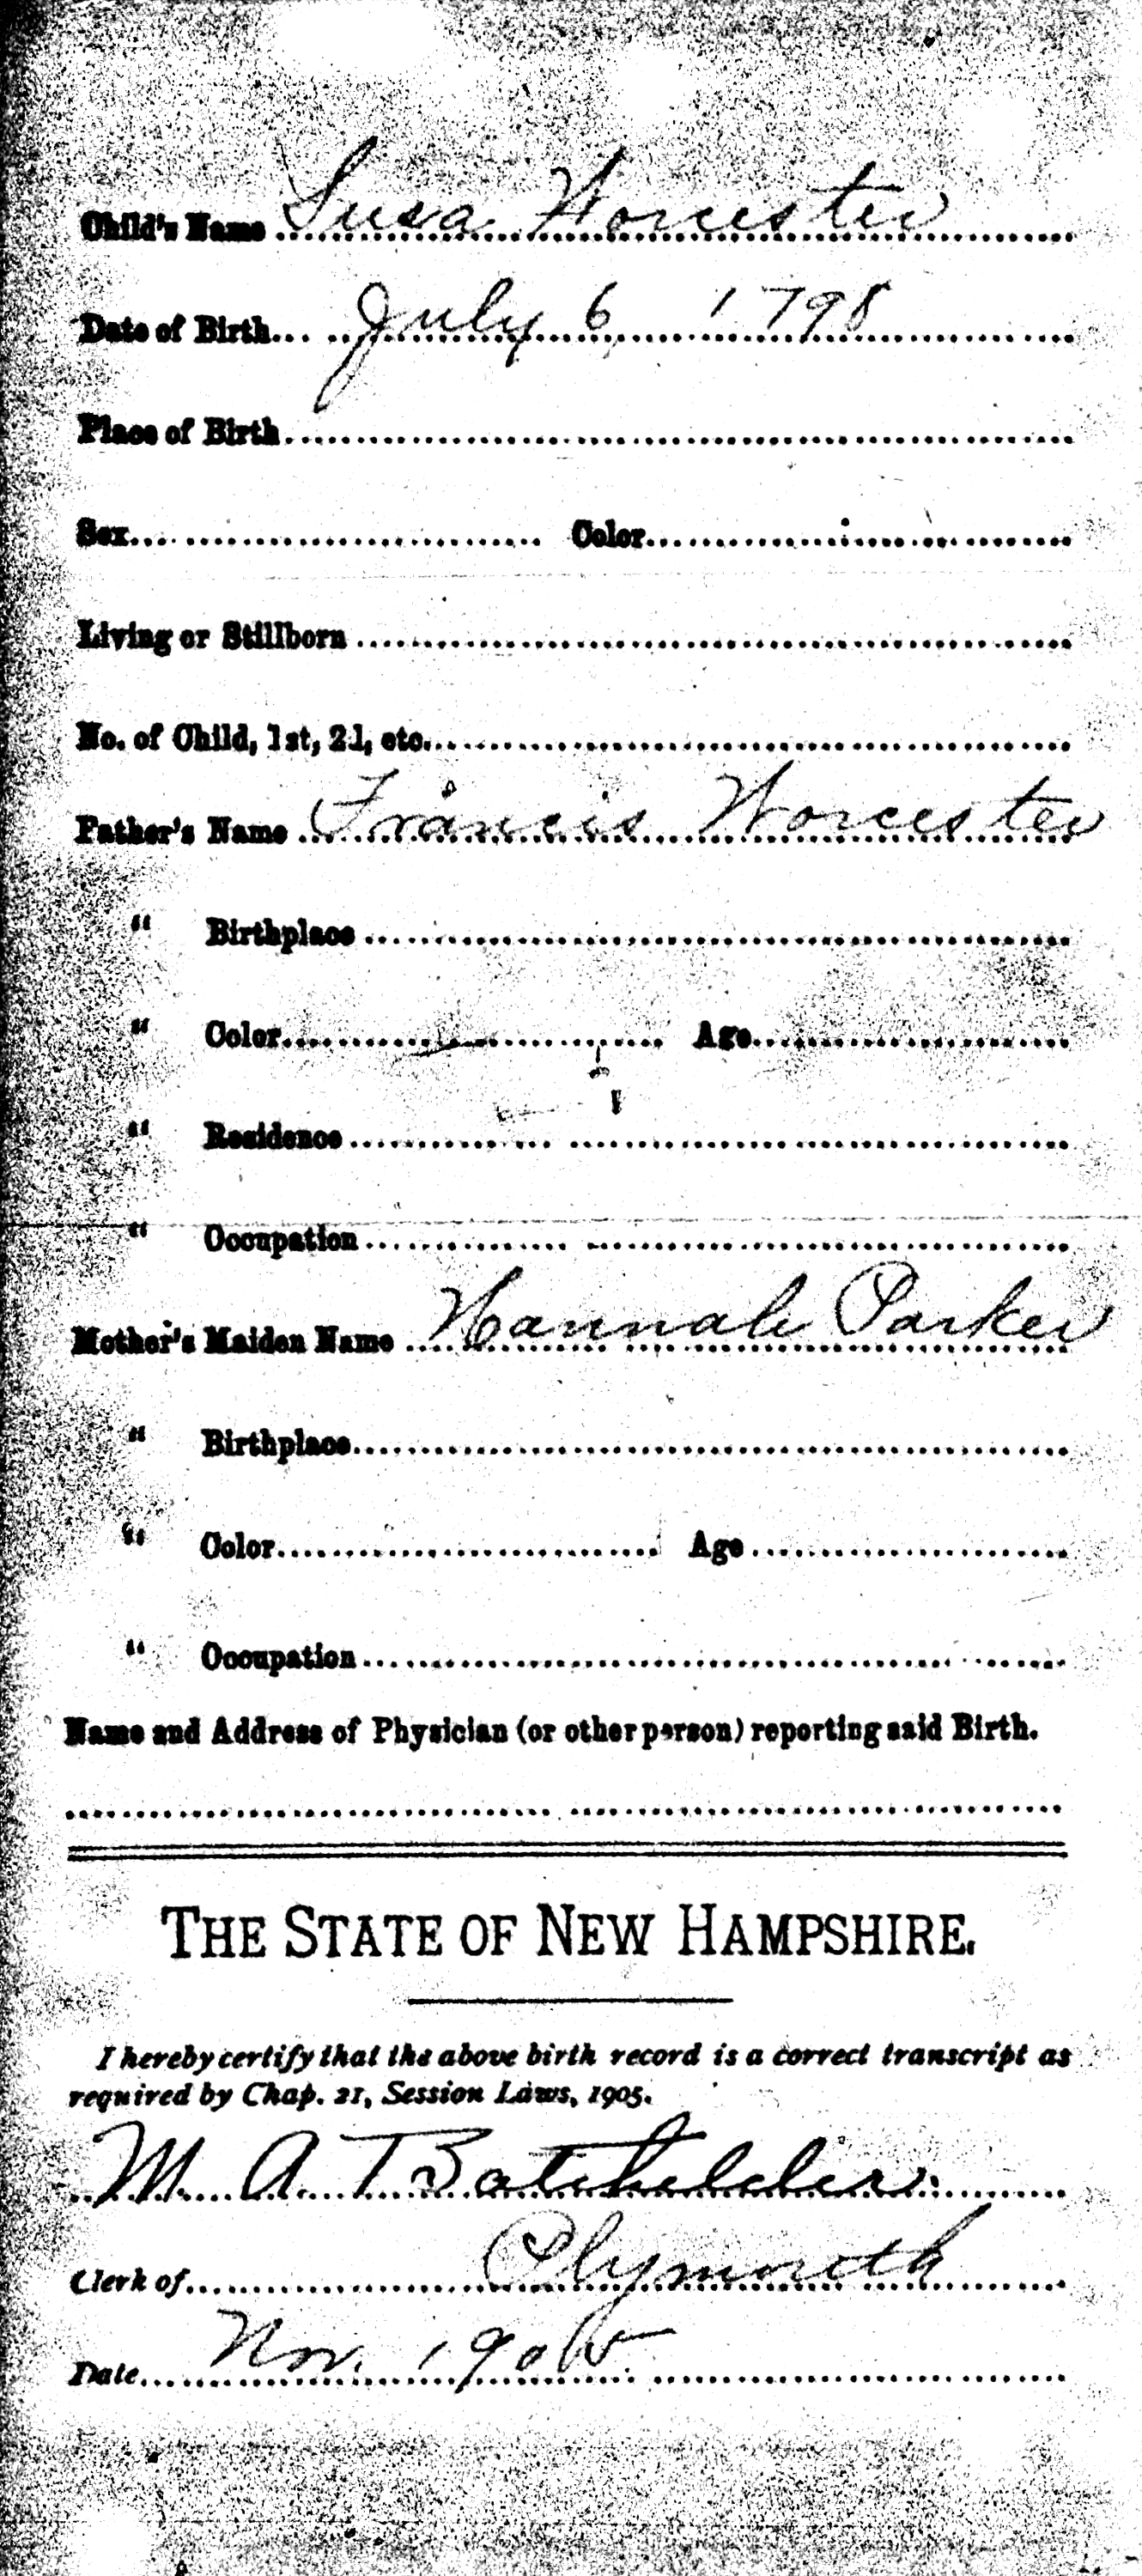 Child's Name Susa Worcester
Date of Birth July 6 1798
Place of Birth
Sex Color
Living or Stillborn
No. of Child, 1st, 2d, etc.
Father's Name Francis Worcester
" Birthplace
" Color Age
" Residence
" Occupation
Mother's Maiden Name Hannah Parker
" Birthplace
" Color Age
" Occupation
Name and Address of Physician (or other person) reporting said Birth.
THE STATE OF NEW HAMPSHIRE.
I hereby certify that the above birth record is a correct transcript as
required by Chap. 21, Session Laws, 1905.
M. A. Batchelder
Clerk of Plymouth
Date Nov. 1905